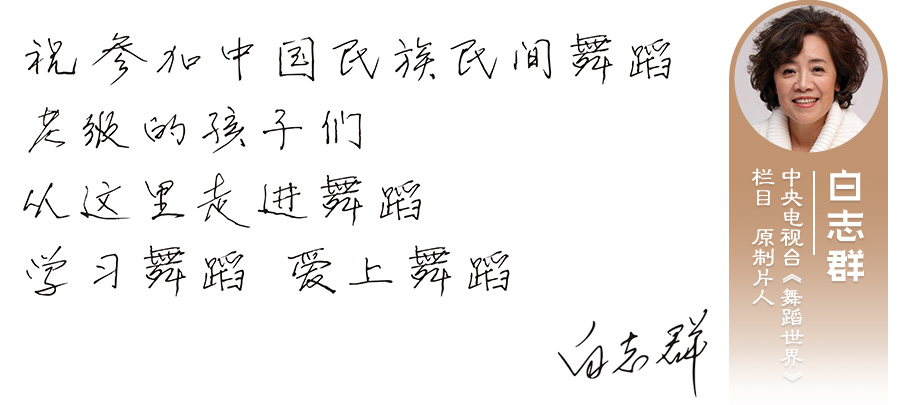 祝参加中国民族民间舞蹈
考级的孩子们
从这里走进舞蹈
学习舞蹈 爱上舞蹈
白志群
白志群
中央电视台《舞蹈世界》
栏目 原制片人